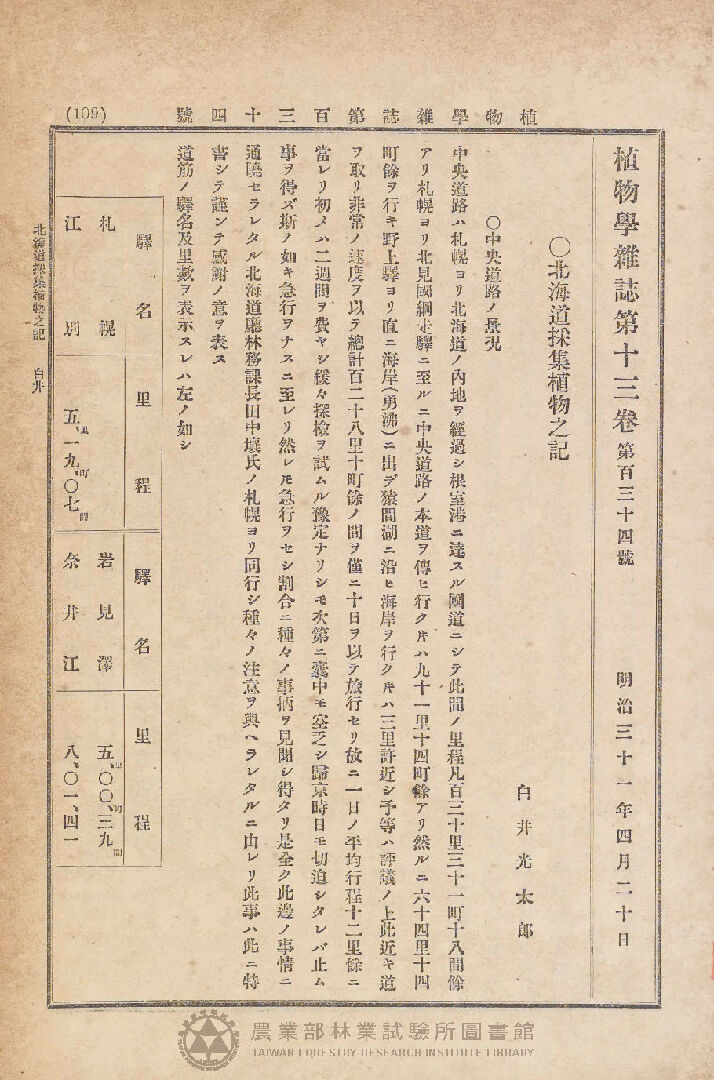 植物學雜誌第百三十四號
(109)
植物學雜誌第十三卷 第百三十四號 明治三十一年四月二十日
〇北海道採集植物之記
白井光太郎
〇中央道路ノ景況
中央道路ハ札幌ヨリ北海道ノ內地ヲ經過シ根室港ニ達スル國道ニシテ此間ノ里程凡百三十里三十一町十八間餘
アリ札幌ヨリ北見國網走驛ニ至ルニ中央道路ノ本道ヲ傳ヒ行クキハ九十一里十四町餘アリ然ルニ六十四里十四
町餘ヲ行キ野上驛ヨリ直ニ海岸(勇沸)ニ出デ猿間湖ニ沿ヒ海岸ヲ行クキハ三里許近シ予等ハ評議ノ上此近キ道
ヲ取リ非常ノ速度ヲ以テ總計百二十八里十町餘ノ間ヲ僅ニ十日ヲ以テ旅行セリ故ニ一日ノ平均行程十二里餘ニ
當レリ初メハ二週間ヲ費ヤシ緩々探檢ヲ試ムル豫定ナリシモ次第ニ囊中モ空乏シ歸京時日モ切迫シタレバ止ム
事ヲ得ズ斯ノ如キ急行ヲナスニ至レリ然レ𪜈急行ヲセシ割合ニ種々ノ事柄ヲ見聞シ得タリ是全ク此邊ノ事情ニ
通曉セラレタル北海道廳林務課長田中壤氏ノ札幌ヨリ同行シ種々ノ注意ヲ與ヘラレタルニ由レリ此事ハ此ニ特
書シテ謹ンテ感謝ノ意ヲ表ス
道筋ノ驛名及里數ヲ表示スレハ左ノ如シ
驛名 里程 驛名 里程
札幌 岩見澤 五里、〇〇町、三九間
江別 五里、一九町、〇七間 奈井江 八、〇一、四一
北海道採集植物之記 白井
農業部林業試驗所圖書館
TAIWAN FORESTRY RESEARCH INSTITUTE LIBRARY